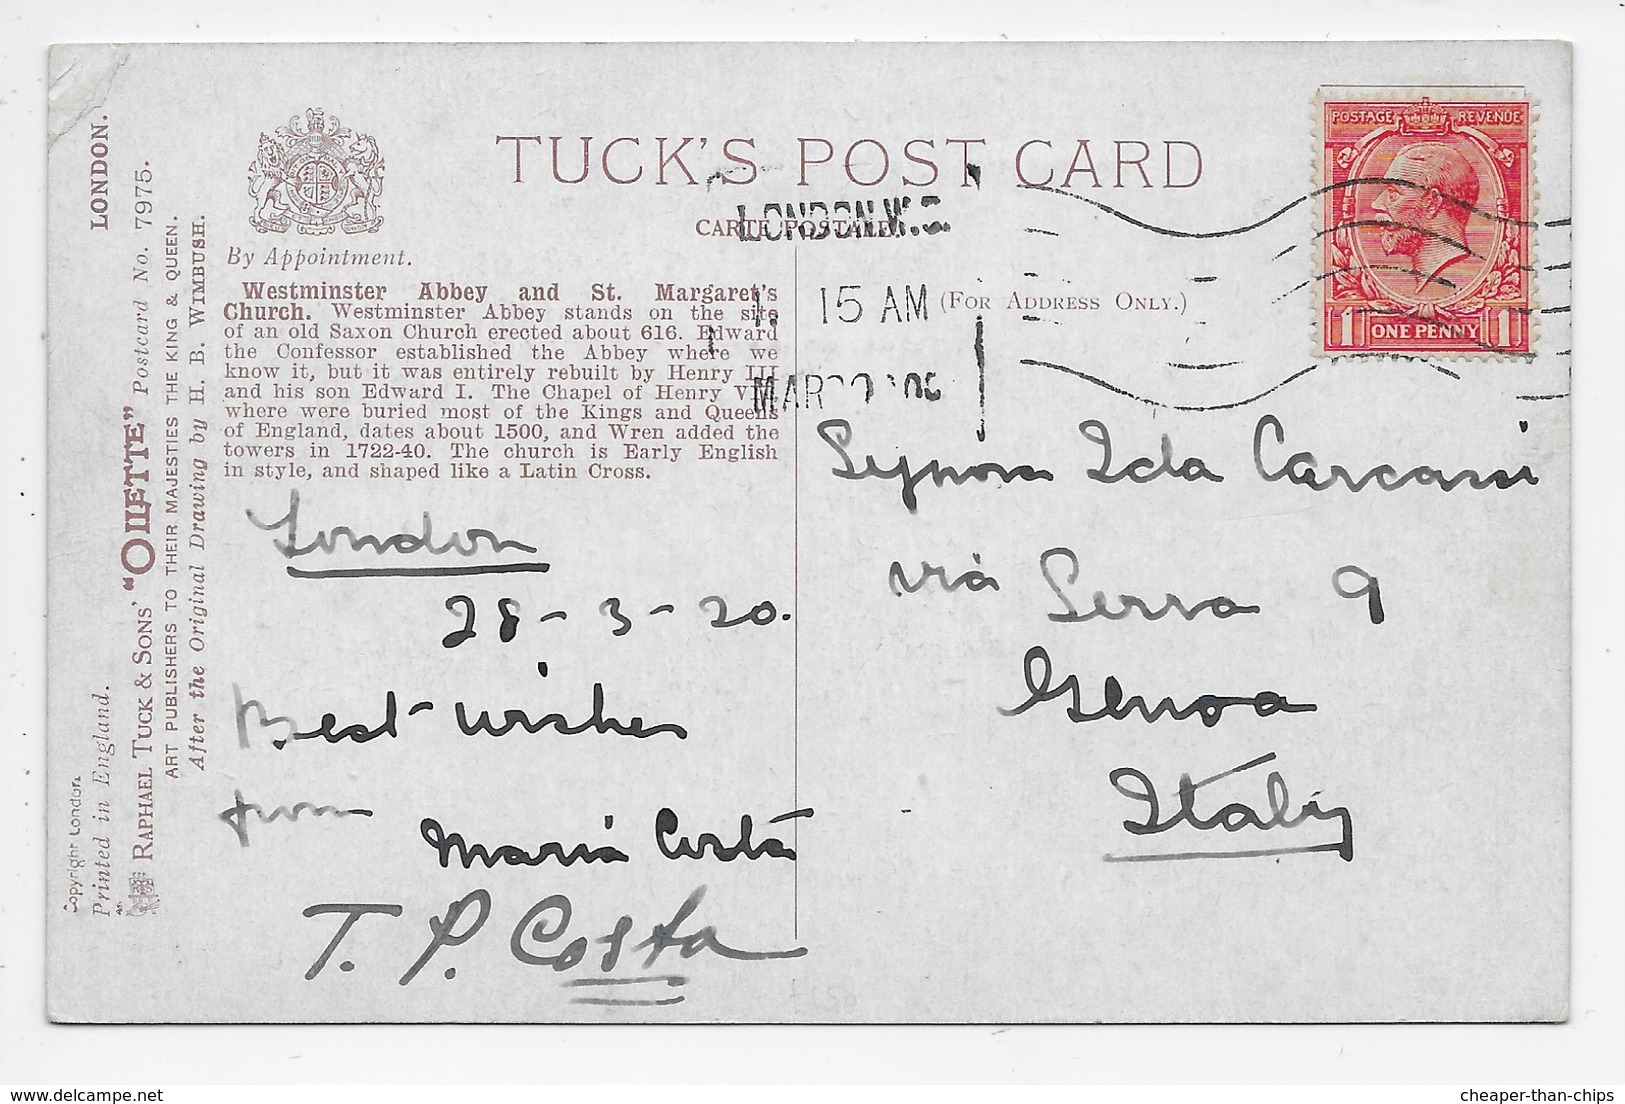 TUCK'S POST CARD
CARTE POSTALE
(FOR ADDRESS ONLY.)
By Appointment.
Westminster Abbey and St. Margaret's
Church. Westminster Abbey stands on the site
of an old Saxon Church erected about 616. Edward
the Confessor established the Abbey where we
know it, but it was entirely rebuilt by Henry III
and his son Edward I. The Chapel of Henry VII
where were buried most of the Kings and Queens
of England, dates about 1500, and Wren added the
towers in 1722-40. The church is Early English
in style, and shaped like a Latin Cross.
London
28-3-20.
Best wishes
from
Maria Costa
T. P. Costa
LONDON. W.
15 AM
MAR
POSTAGE REVENUE
1 ONE PENNY 1
Signora Ida Carcassi
via Serra 9
Genoa
Italy
LONDON.
"OILETTE" Postcard No. 7975.
RAPHAEL TUCK & SONS'
ART PUBLISHERS TO THEIR MAJESTIES THE KING & QUEEN.
After the Original Drawing by H. B. WIMBUSH.
Copyright London.
Printed in England.
delcampe.net
cheaper-than-chips